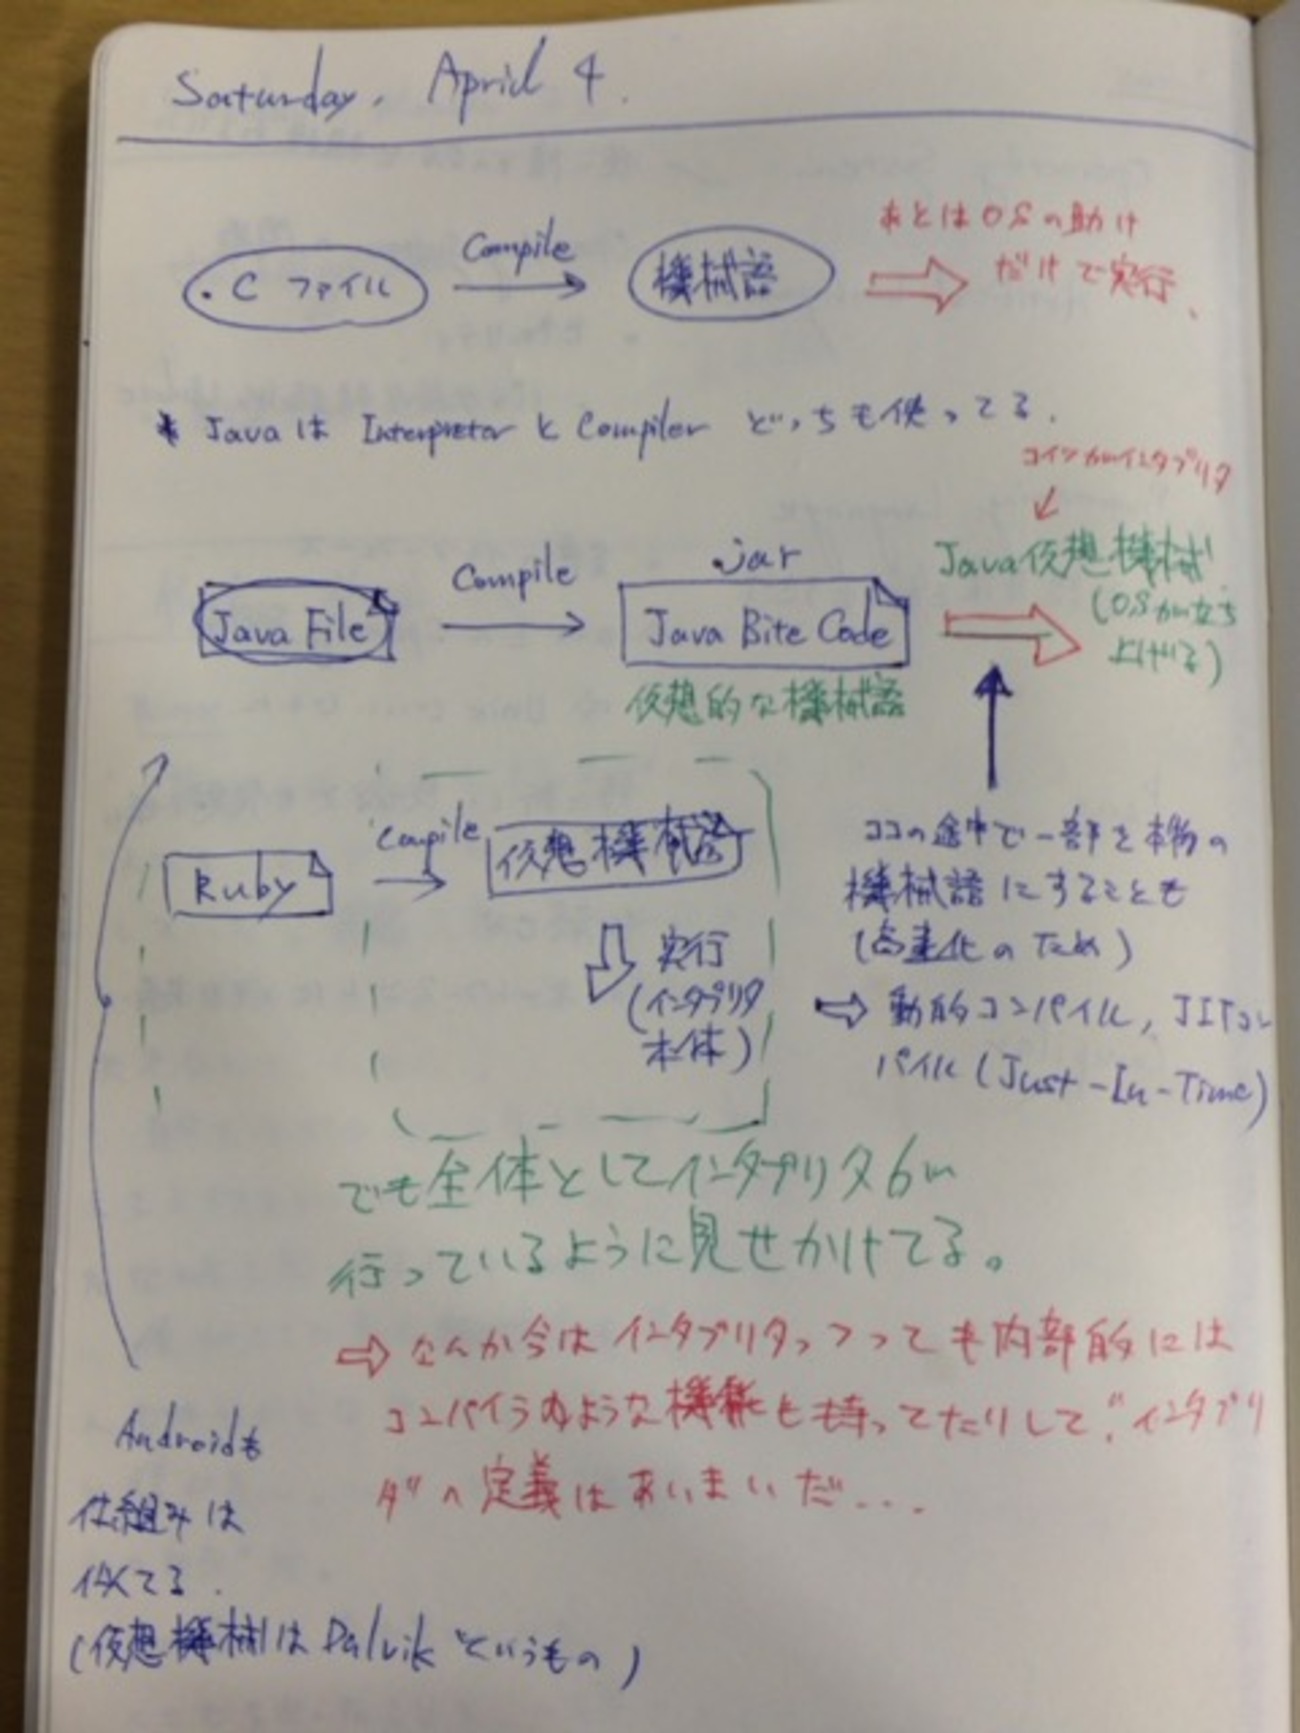 Saturday, April 4.
.C ファイル
Compile
機械語
あとはOSの助け
だけで実行、
* Javaは Interpretor と Compiler どっちも使ってる.
コイツがインタプリタ
Java File
Compile
.jar
Java Bite Code
仮想的な機械語
Java仮想機械
(OSが立ち
上げる)
Ruby
Compile
仮想機械語
実行
(インタプリタ
本体)
ココの途中で一部を本物の
機械語にすることも
(高速化のため)
⇨ 動的コンパイル, JITコン
パイル (Just-In-Time)
でも全体としてインタプリタが
行っているように見せかけてる。
⇨ なんか今はインタプリタっつっても内部的には
コンパイラのような機能を持ってたりして、"インタプリ
タ"の定義はあいまいだ...
Androidも
仕組みは
似てる.
(仮想機械は Dalvik というもの)